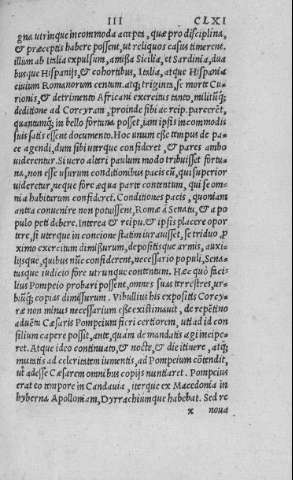 III CLXI
gna utrinque incommoda accepta, quæ pro disciplina,
& præceptis habere possent, ut reliquos casus timerent.
illum ab Italia expulsum, amissa Sicilia, et Sardinia, dua
busque Hispanijs, & cohortibus, Italia, atque Hispania
ciuium Romanorum centum atq; triginta, se morte Cu-
rionis, & detrimento Africani exercitus tanto, militūq;
deditione ad Corcyram, proinde sibi ac reip. parcerēt,
quantumq; in bello fortuna posset, iam ipsi incommodis
suis satis essent documento. Hoc unum esse tempus de pa-
ce agendi, dum sibi uterque confideret, & pares ambo
uiderentur. Si uero alteri paulum modo tribuisset fortu-
na, non esse usurum conditionibus pacis eū, qui superior
uideretur, neque fore æqua parte contentum, qui se om-
nia habiturum confideret. Conditiones pacis, quoniam
antea conuenire non potuissent, Romæ à Senatu, & a po
pulo peti debere. Interea & reip. & ipsis placere opor
tere, si uterque in concione statim iurauisset, se triduo p̱
ximo exercitum dimissurum, depositisque armis, auxi-
lijsque, quibus nūc confiderent, necessario populi, Sena-
tusque iudicio fore utrunque contentum. Hæc quò facil
lius Pompeio probari possent, omnes suas terrestres, ur-
biūq; copias dimissurum. Vibullius his expositis Corcy-
ræ non minus necessarium esse existimauit, de repētino
aduētu Cæsaris Pompeium fieri certiorem, uti ad id con
silium capere posset, ante, quàm de mandatis agi incipe-
ret. Atque ideo continuato, & nocte, & die itinere, atq;
mutatis ad celeritatem iumentis, ad Pompeium cōtendit,
ut adesse Cæsarem omnibus copijs nuntiaret. Pompeius
erat eo tempore in Candauia, iterque ex Macedonia in
hyberna Apolloniam, Dyrrachiumque habebat. Sed re
x noua